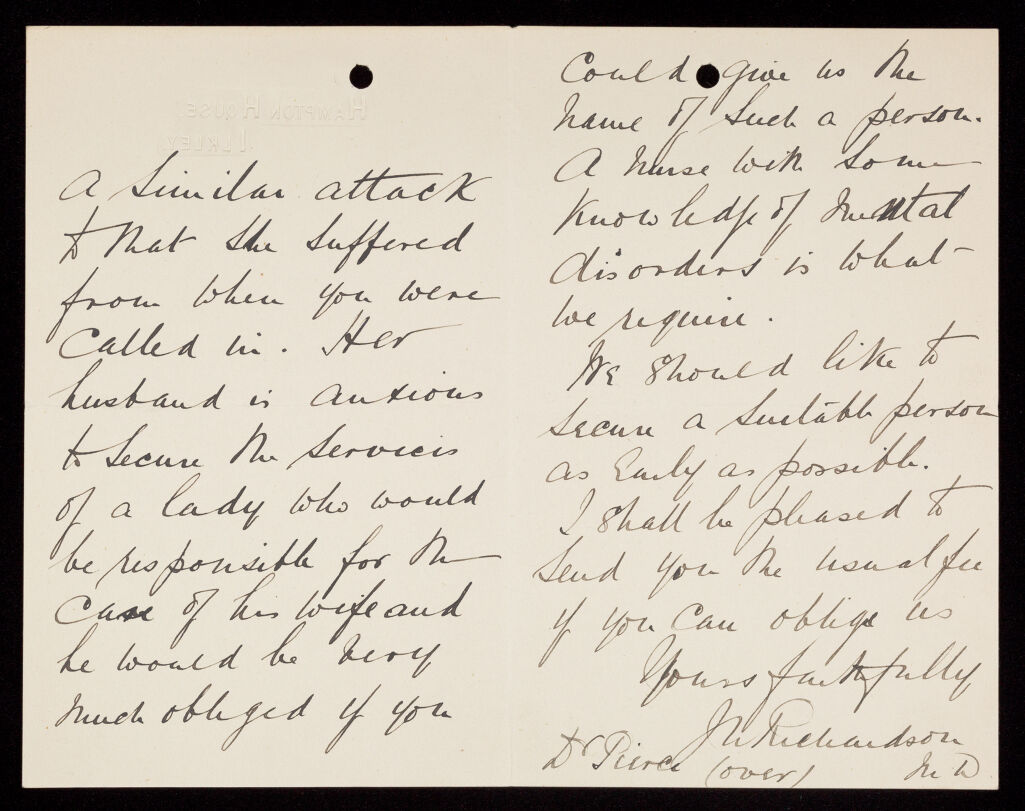 HAMPTON HOUSE,
ILKLEY.
a similar attack
to that she suffered
from when you were
called in. Her
husband is anxious
to secure the services
of a lady who would
be responsible for the
care of his wife and
he would be very
much obliged if you
could give us the
name of such a person.
A nurse with some
knowledge of mental
disorders is what
we require.
We should like to
secure a suitable person
as early as possible.
I shall be pleased to
send you the usual fee
if you can oblige us
Yours faithfully
Richardson
Dr Pierce (over) M D